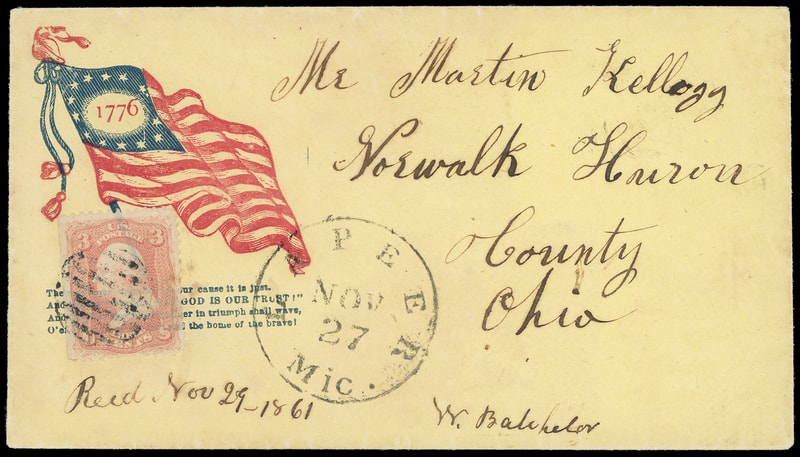 1776
Mr Martin Kellogg
Norwalk Huron
County
Ohio
3 U.S. POSTAGE 3
LAPEER
NOV
27
Mic.
The ur cause it is just.
And GOD IS OUR TRUST!"
And er in triumph shall wave,
O'e the home of the brave!
Recd Nov 29-1861
W. Batchelor